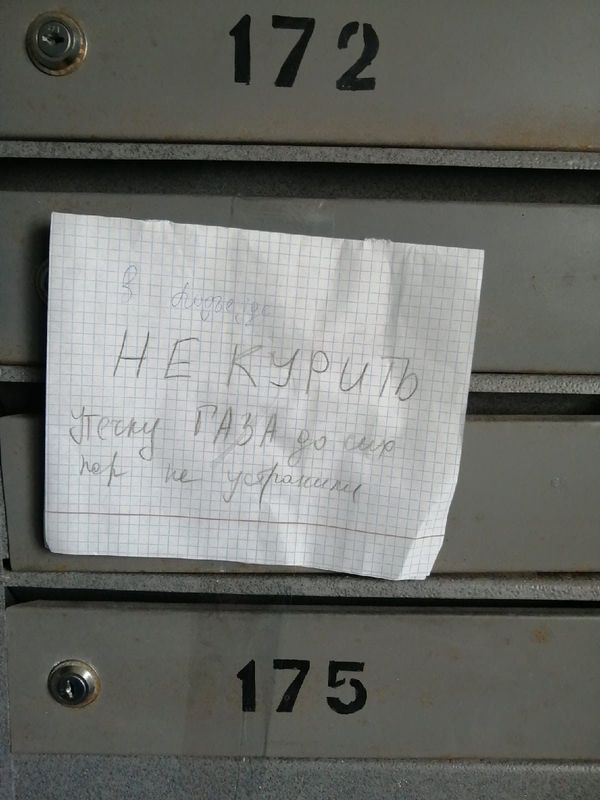 172
в подъезде
НЕ КУРИТЬ
утечку ГАЗА до сих
пор не устранили
175